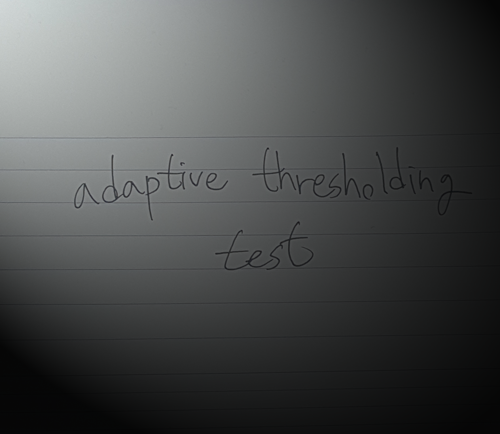 adaptive thresholding
test